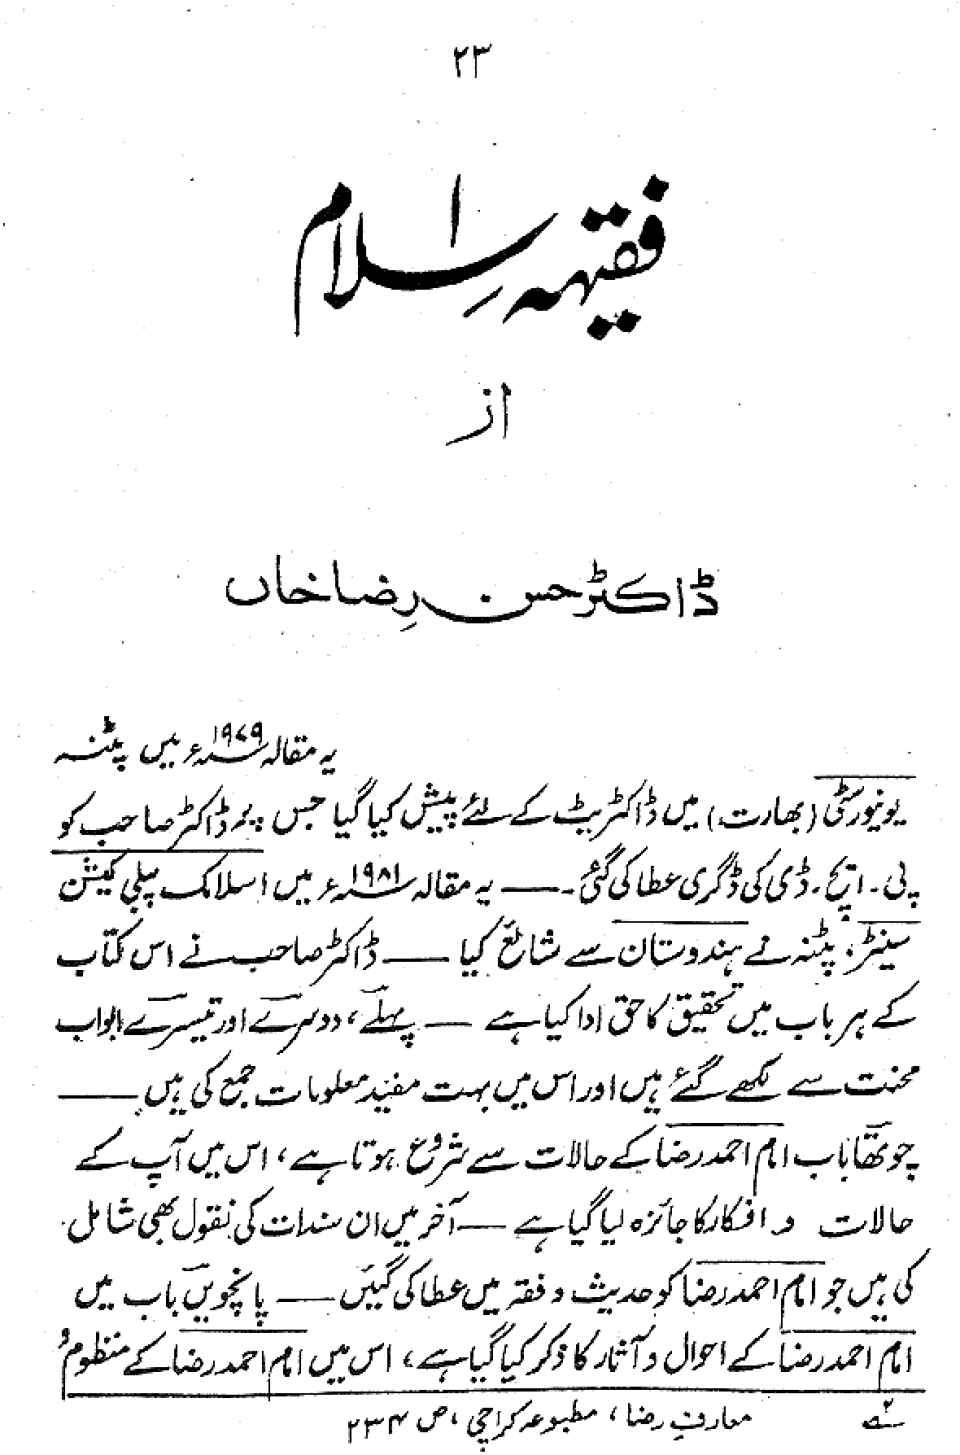 ۲۳
فقیہہِ اسلام
از
ڈاکٹر حسن رضا خاں
یہ مقالہ ۱۹۷۹ء میں پٹنہ
یونیورسٹی (بھارت) میں ڈاکٹریٹ کے لئے پیش کیا گیا جس پر ڈاکٹر صاحب کو
پی۔ ایچ۔ ڈی کی ڈگری عطا کی گئی۔ — یہ مقالہ ۱۹۸۱ء میں اسلامک پبلی کیشن
سینٹر، پٹنہ نے ہندوستان سے شائع کیا — ڈاکٹر صاحب نے اس کتاب
کے ہر باب میں تحقیق کا حق ادا کیا ہے — پہلے، دوسرے اور تیسرے ابواب
محنت سے لکھے گئے ہیں اور اس میں بہت مفید معلومات جمع کی ہیں —
چوتھا باب امام احمد رضا کے حالات سے شروع ہوتا ہے، اس میں آپ کے
حالات و افکار کا جائزہ لیا گیا ہے — آخر میں ان سندات کی نقول بھی شامل
کی ہیں جو امام احمد رضا کو حدیث و فقہ میں عطا کی گئیں — پانچویں باب میں
امام احمد رضا کے احوال و آثار کا ذکر کیا گیا ہے، اس میں امام احمد رضا کے منظوم و
۲ معارفِ رضا، مطبوعہ کراچی، ص ۲۳۴